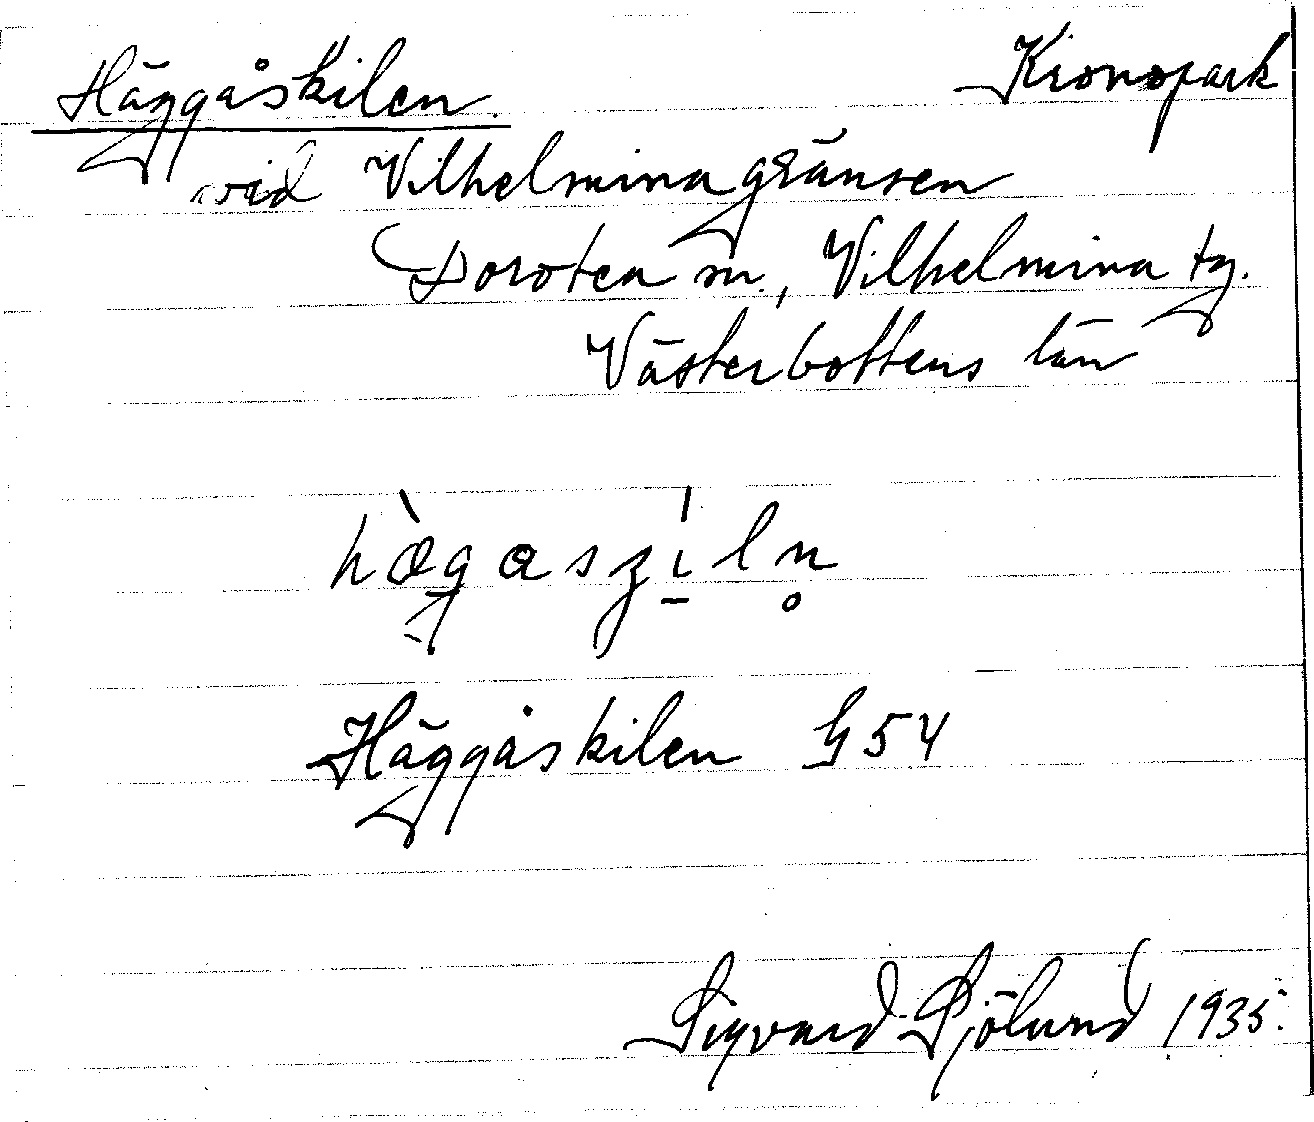 Häggåskilen. Kronopark
vid Vilhelminagränsen
Dorotea sn., Vilhelmina tg.
Västerbottens län
hæ̀gaszíln̥
Häggåskilen G54
Sigvard Sjölund 1935.